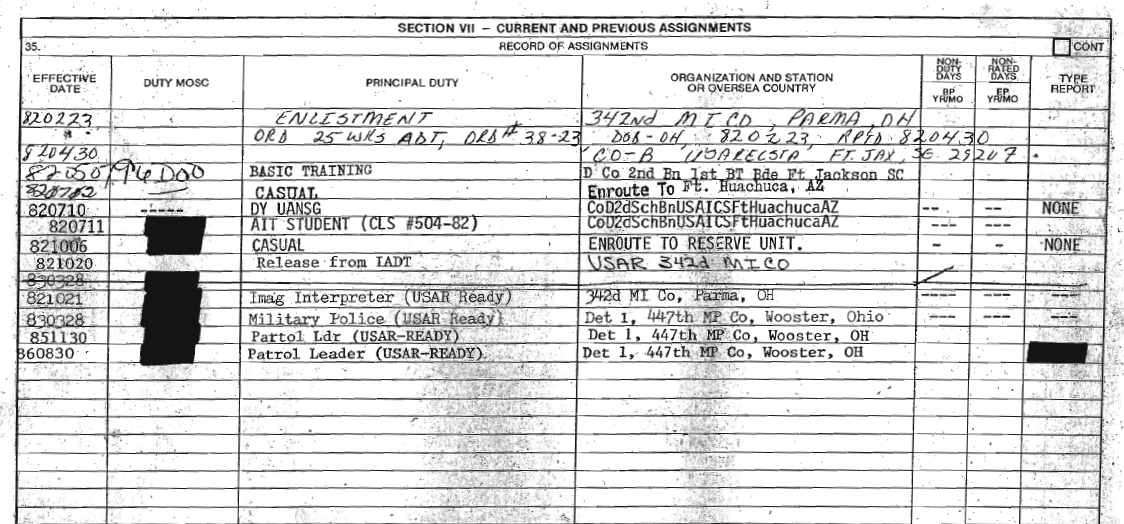 SECTION VII – CURRENT AND PREVIOUS ASSIGNMENTS
35. RECORD OF ASSIGNMENTS CONT
EFFECTIVE DATE DUTY MOSC PRINCIPAL DUTY ORGANIZATION AND STATION OR OVERSEA COUNTRY NON-DUTY DAYS BP YR/MO NON-RATED DAYS EP YR/MO TYPE REPORT
820223 ENLISTMENT 342nd MI CO, PARMA, OH
" ORD 25 WKS ADT, ORD# 38-23 DOB-OH, 820223, RPTD 820430
820430 CO-B FT. JAX, SC. 29207
820507 96D00 BASIC TRAINING D Co 2nd Bn 1st BT Bde Ft Jackson SC
820702 CASUAL Enroute To Ft. Huachuca, AZ
820710 ----- DY UANSG CoD2dSchBnUSAICSFtHuachucaAZ -- -- NONE
820711 AIT STUDENT (CLS #504-82) CoD2dSchBnUSAICSFtHuachucaAZ --- ---
821006 CASUAL ENROUTE TO RESERVE UNIT. - - NONE
821020 Release from IADT USAR 342d MI CO
830328
821021 Imag Interpreter (USAR Ready) 342d MI Co, Parma, OH ---- --- ---
830328 Military Police (USAR Ready) Det 1, 447th MP Co, Wooster, Ohio ---- --- ---
851130 Partol Ldr (USAR-READY) Det 1, 447th MP Co, Wooster, OH
860830 Patrol Leader (USAR-READY) Det 1, 447th MP Co, Wooster, OH